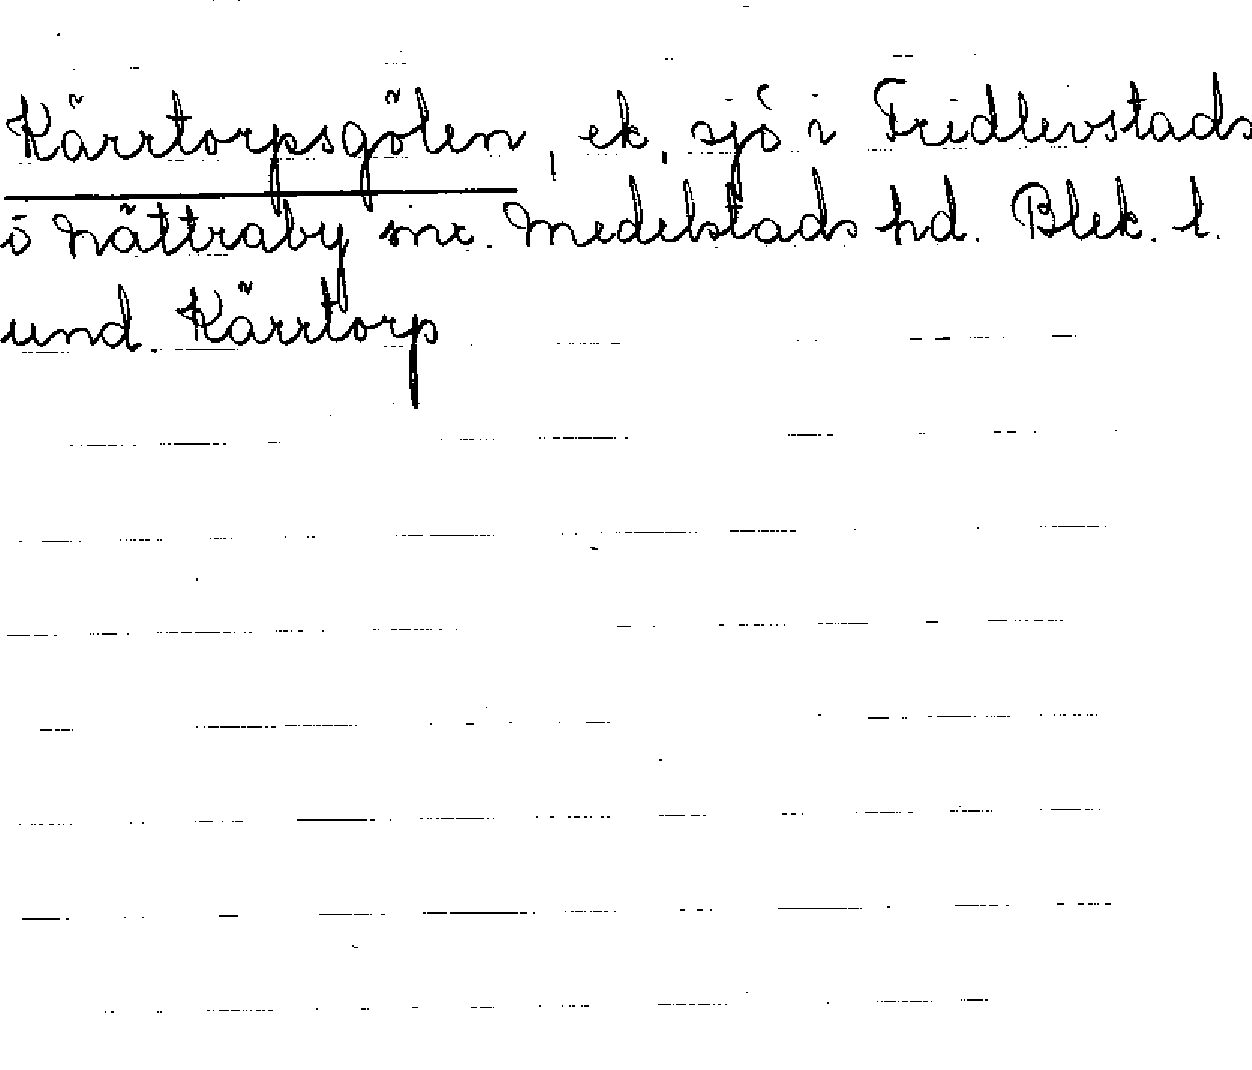 Kärrtorpsgölen, ek. sjö i Fridlevstads
o Nättraby snr. Medelstads hd. Blek. l.
und. Kärrtorp